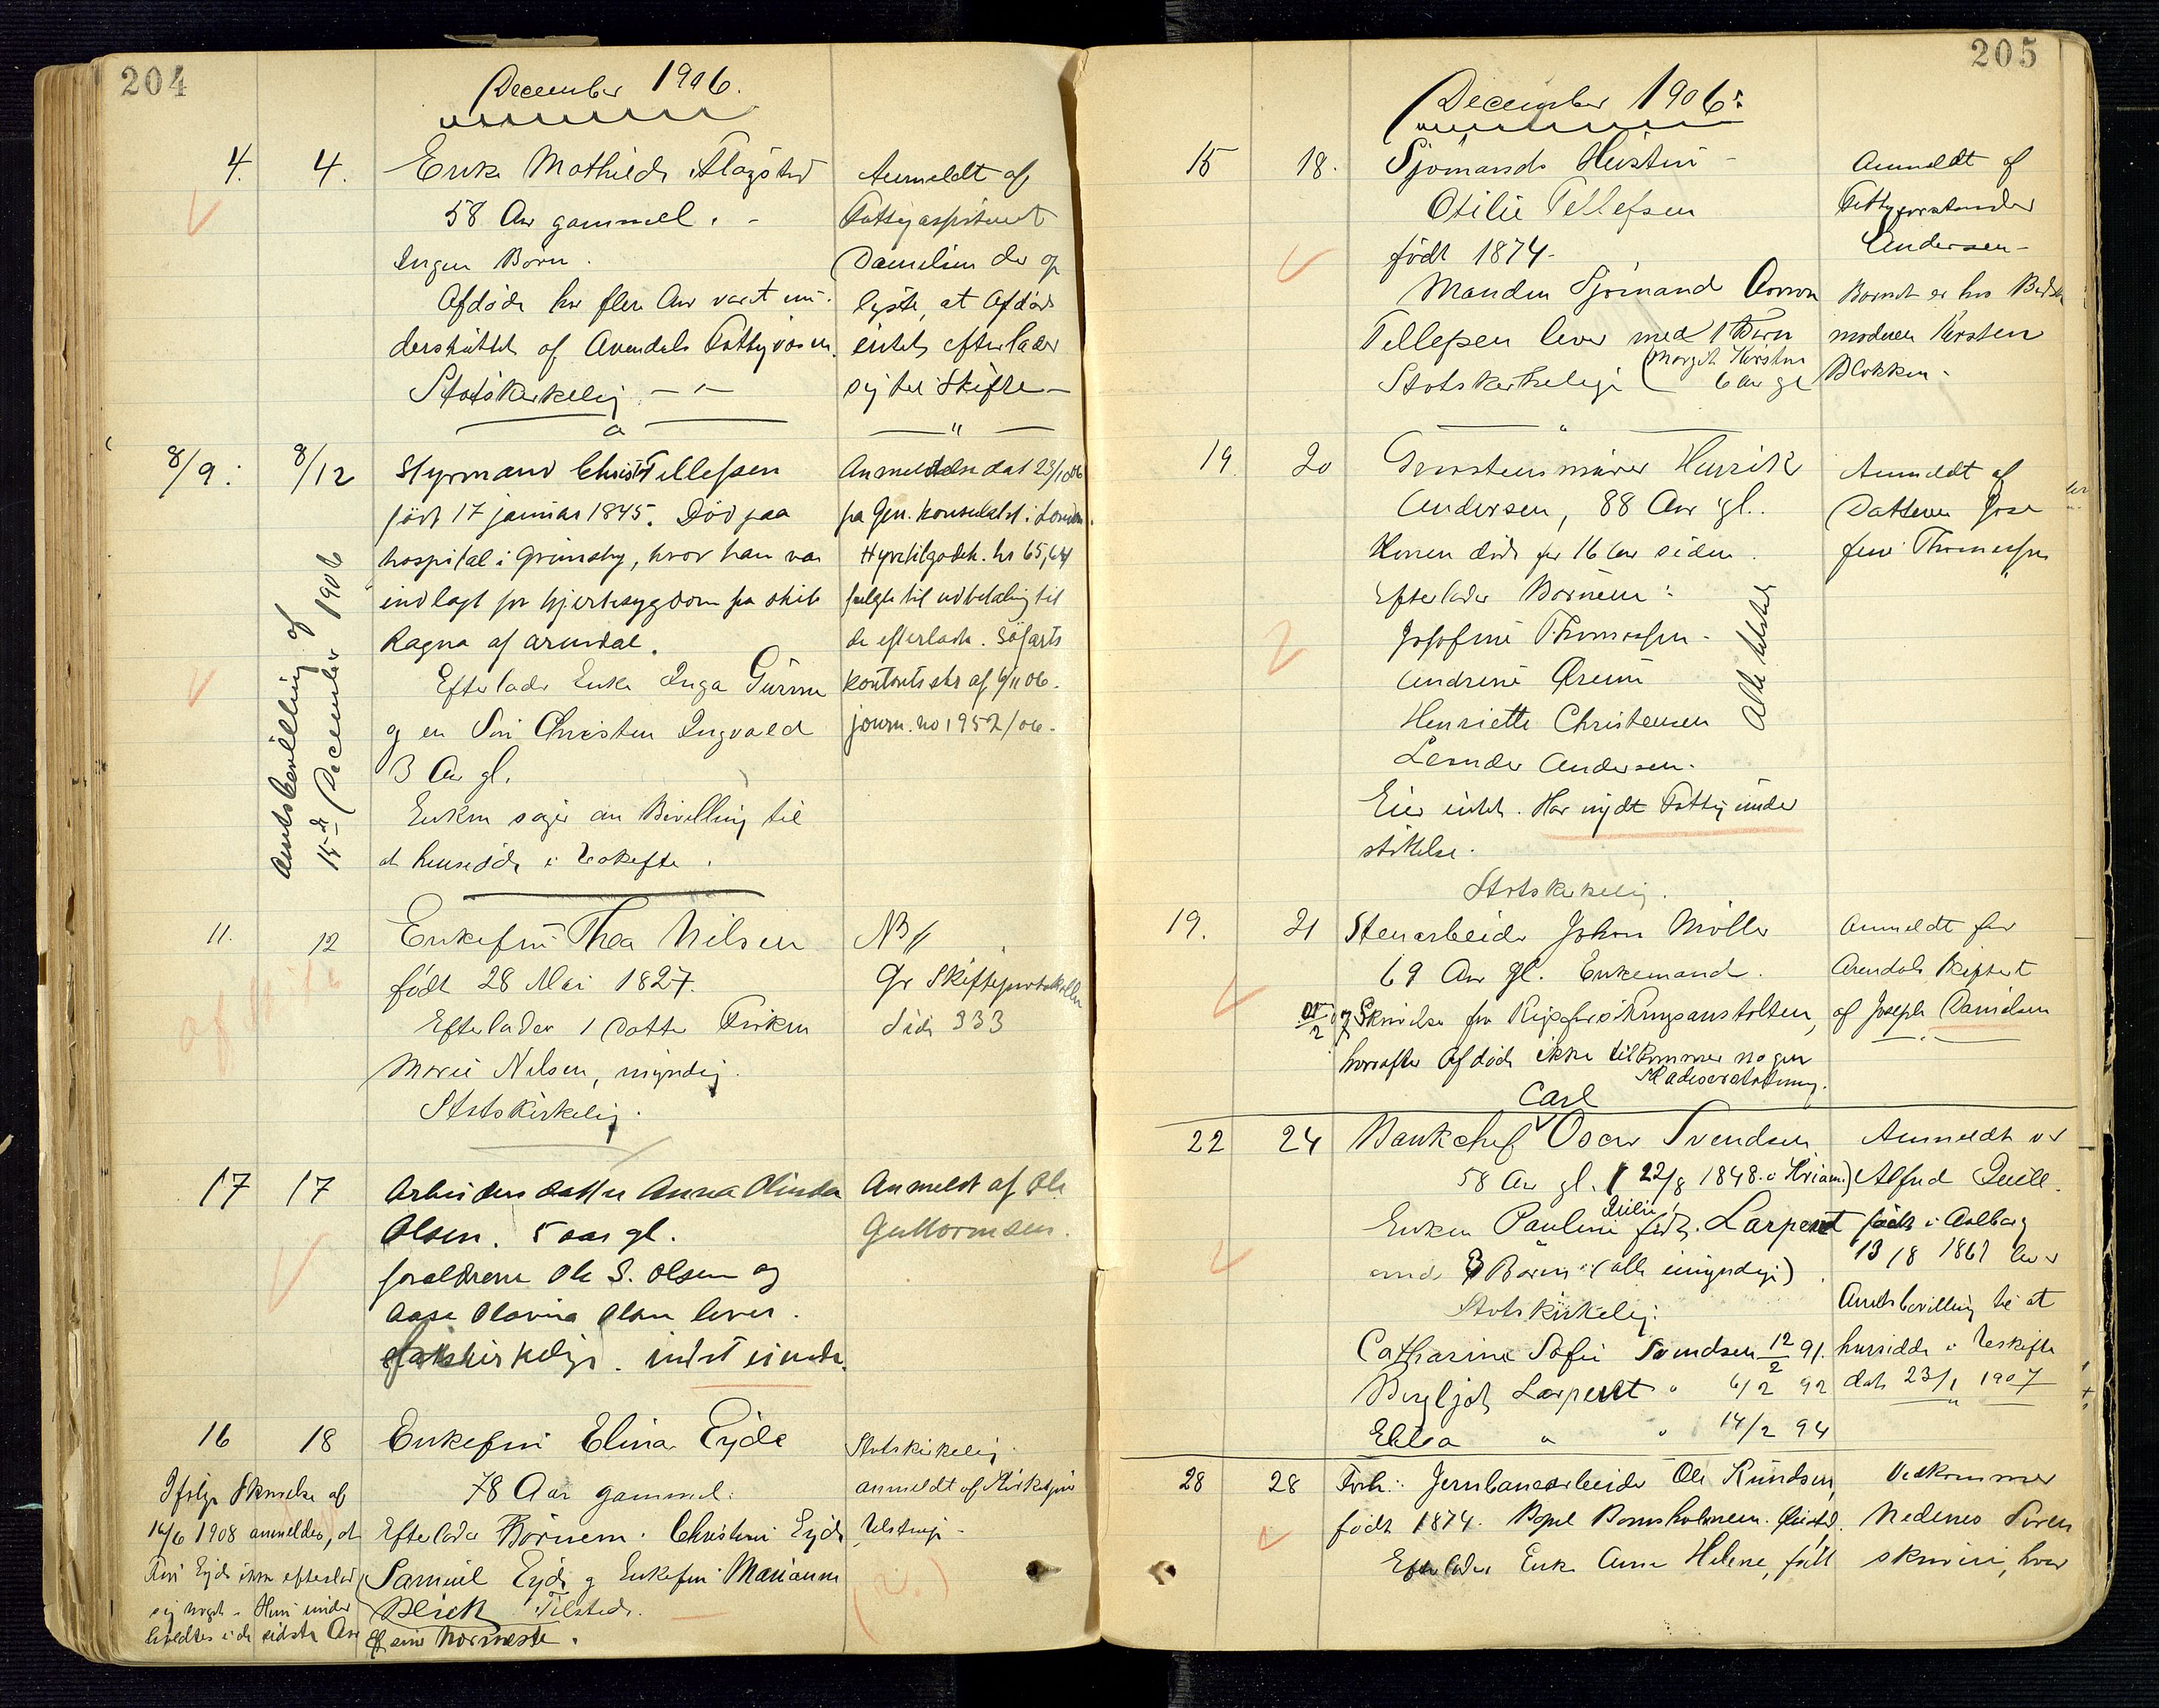 204
December 1906.
4. 4. Enke Mathilde Flagstad
58 Aar gammel. -
Ingen Børn.
Afdøde har flere Aar været un-
derstøttet af Arendals Fattigvæsen.
Statskirkelig - " -
Anmeldt af
Fattigaspirant
Danielsen der op
lyste, at Afdøde
intet efterlader
sig til Skifte -
8/9. 8/12 Styrmand Christ. Tellefsen
født 17 januar 1845. Død paa
hospital i Grimsby, hvor han var
indlagt for hjertesygdom fra skib
Ragna af Arendal.
Efterlader Enke Inga Gurine
og en Søn Christen Ingvald
3 Aar gl.
Enken søger om Bevilling til
at hensidde i Uskifte.
Amtsbevilling af
15de December 1906
Anmeldelse dat 23/10 06
fra Gen. konsulatet i London.
Hyretilgodeh. kr 65,64
følgte til udbetaling til
de efterladte. Søfarts
kontorets skr af 6/11 06.
journ. no 1952/06.
11. 12 Enkefru Thea Nilsen
født 28 Mai 1827.
Efterlader 1 Datter Frøken
Marie Nilsen, myndig.
Statskirkelig.
NB
Gr Skifteprotokollen
Side 333
17 17 Arbeiders datter Anna Olinda
Olsen. 5 aar gl.
forældrene Ole S. Olsen og
Aase Olavina Olsen lever.
Statskirkelige. intet eiende.
Anmeldt af Ole
Guttormsen.
16 18 Enkefru Elina Eyde
78 Aar gammel.
Efterlader Børnene: Christine Eyde
Samuel Eyde og Enkefru Marianne
Bleck Tilstede.
Statskirkelig.
anmeldt af Kirketjener
Ulstrup -
Ifølge Skrivelse af
16/6 1908 anmeldes, at
Fru Eyde ikke efterlod
sig noget. Hun under
holdtes i de sidste Aar
af sine nærmeste.
205
December 1906.
15 18. Sjømands Hustru -
Otilie Tellefsen
født 1874.
Manden Sjømand
Tellefsen lever med 1 Barn
(Margit Kirstine
6 Aar gl
Statskirkelige
Anmeldt af
Fattigforstander
Andersen -
Barnet er hos Bedste
moderen Kirsten
Blokken.
19 20 Graastensmurer Henrik
Andersen, 88 Aar gl.
Konen døde for 16 Aar siden.
Efterlader Børnene:
Josefine Thomassen -
Andrine
Henriette Christensen
Leander Andersen.
Alle tilstede
Eier intet. Har nydt Fattigunder
støttelse.
Statskirkelig.
Anmeldt af
Datteren Jose
fine Thomassen
19. 21 Stenarbeider Johan Møller
69 Aar gl. Enkemand.
Skrivelse fra Rigsforsikringsanstalten,
hvorefter Afdøde ikke tilkommer nogen
Skadeserstatning.
Anmeldt for
Arendals Skifteret
af Joseph Danielsen
22 24 Bankchef Carl Oscar Svendsen
58 Aar gl. (22/8 1848 i Kriania.)
Enken Pauline Julie født Larpent
med 3 Børn (alle umyndige)
Statskirkelig.
Catharina Sofie Svendsen 12/2 91.
Bergljot Larpent " 6/2 92
Ebba " " 14/2 94
Anmeldt ved
Alfred Quill.
født i Aalborg
13/8 1861 lever
Amtsbevilling til at
hensidde i Uskifte
dat 23/1 1907
28 28 Forh. Jernbanearbeider Ole Knudsen,
født 1874. Bopæl
Efterlader Enke Anne Helene, født
Vedkommer
Nedenes Soren
skriveri, hvor